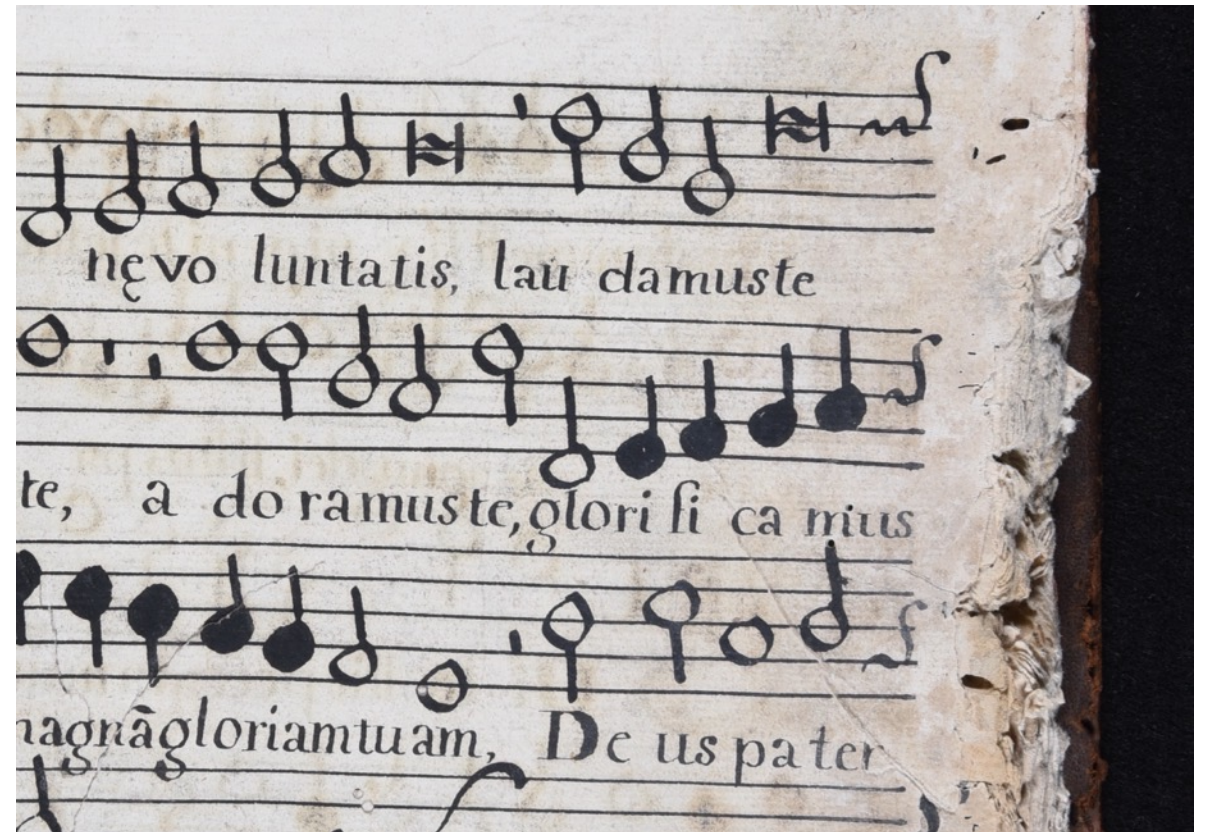 nęvo luntatis, lau damuste
te, a do ramuste, glori fi ca mus
magnāgloriamtuam, De us pa ter